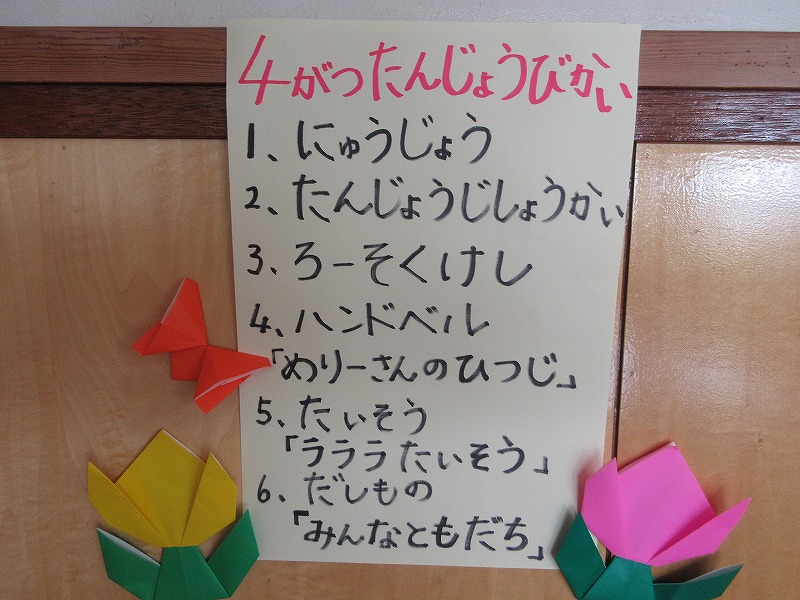 4がつたんじょうびかい
1、にゅうじょう
2、たんじょうじしょうかい
3、ろーそくけし
4、ハンドベル
「めりーさんのひつじ」
5、たいそう
「ラララたいそう」
6、だしもの
「みんなともだち」